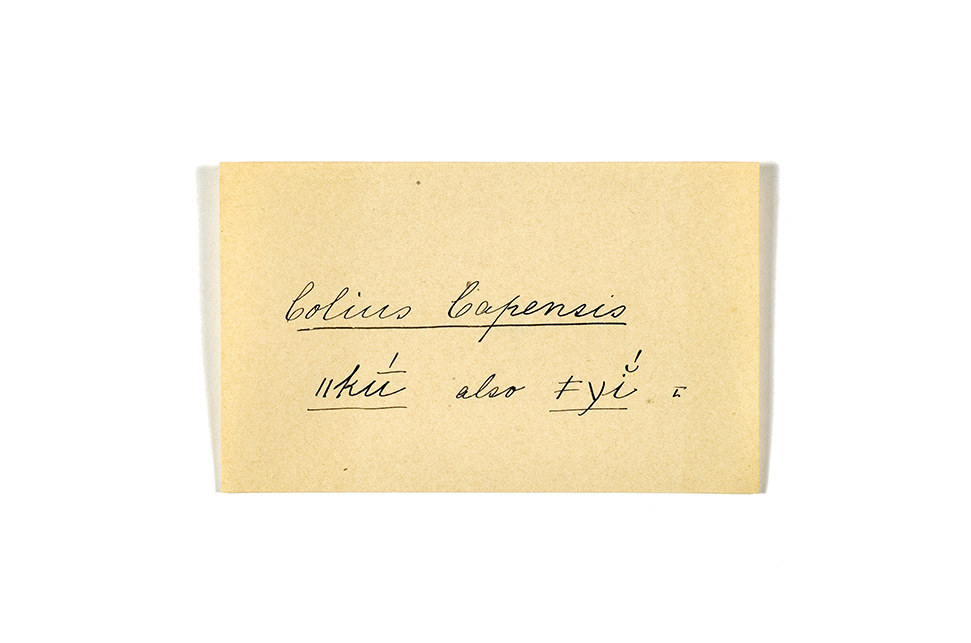 Colius Capensis
ǁkū́ also ǂyĭ́